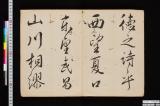 德之詩乎
西望夏口
東望武昌
山川相繆